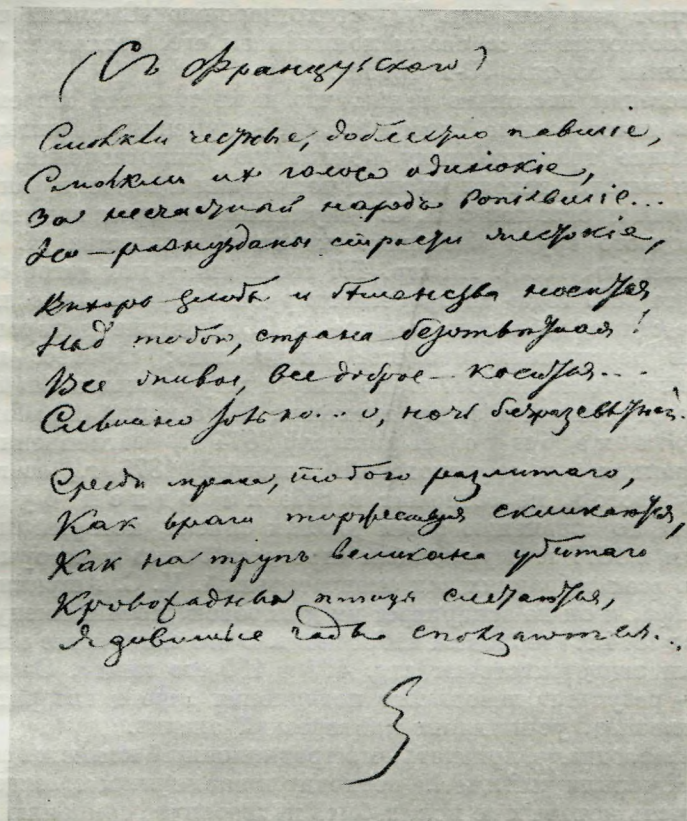 (Съ Французскаго)
Смолкли честные, доблестно павшіе,
Смолкли их голоса одинокіе,
За несчастный народъ вопіявшіе...
Но — разнузданы страсти жестокіе,
Вихорь злобы и бѣшенства носится
Над тобою, страна безотвѣтная!
Все живое, все доброе — косится...
Слышно только... о, ночь безразсвѣтная.
Среди мрака, тобою разлитаго,
Как враги торжествуя скликаются,
Как на трупъ великана убитаго
Кровожадныя птицы слетаются,
Ядовитые гады сползаются...